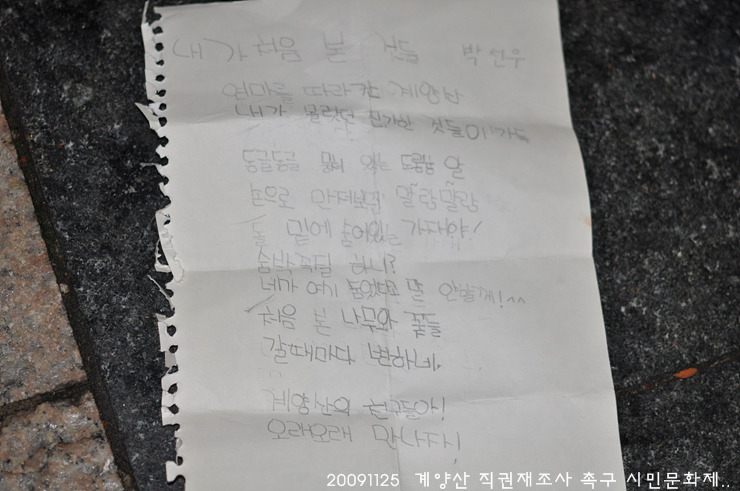 내가 처음 본 것들 박선우
엄마를 따라간 계양산
내가 몰랐던 신기한 것들이 가득
동글동글 뭉쳐 있는 도롱뇽 알
손으로 만져보면 말랑말랑
돌 밑에 숨어있는 가재야!
숨박꼭질 하니?
네가 여기 숨었다고 말 안할께!^^
처음 본 나무와 꽃들
갈때마다 변하네.
계양산의 친구들아!
오래오래 만나자!
20091125 계양산 직권재조사 촉구 시민문화제..